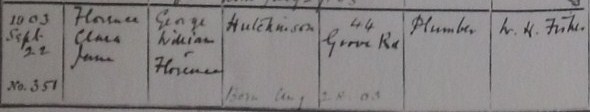 1903 Florence George Hutchinson 44 Plumber W. H. Fisher
Sept. Clara William Grove Rd
22 Jane & Florence
No. 351
Born Aug 28.03